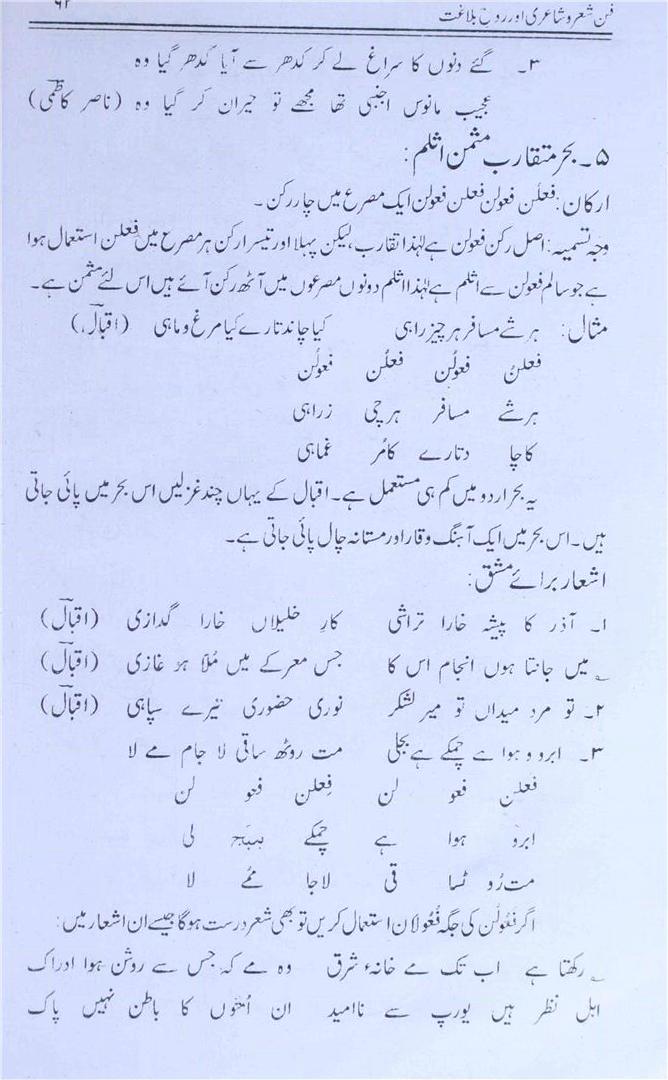 ۶۲
فن شعر و شاعری اور روح بلاغت
۳۔ گئے دنوں کا سراغ لے کر کدھر سے آیا کدھر گیا وہ
عجیب مانوس اجنبی تھا مجھے تو حیران کر گیا وہ (ناصر کاظمی)
۵۔ بحر متقارب مثمن اثلم:
ارکان: فعلن فعولن فعلن فعولن ایک مصرع میں چار رکن۔
وجہ تسمیہ: اصل رکن فعولن ہے لہٰذا تقارب، لیکن پہلا اور تیسرا رکن ہر مصرع میں فعلن استعمال ہوا
ہے جو سالم فعولن سے اثلم ہے لہٰذا اثلم دونوں مصرعوں میں آٹھ رکن آئے ہیں اس لئے مثمن ہے۔
مثال: ہر شے مسافر ہر چیز راہی کیا چاند تارے کیا مرغ و ماہی (اقبال)
فعلن فعولن فعلن فعولن
ہر شے مسافر ہر چی زراہی
کا چا دتارے کا مُر غماہی
یہ بحر اردو میں کم ہی مستعمل ہے۔ اقبال کے یہاں چند غزلیں اس بحر میں پائی جاتی
ہیں۔ اس بحر میں ایک آہنگ وقار اور مستانہ چال پائی جاتی ہے۔
اشعار برائے مشق:
۱۔ آذر کا پیشہ خارا تراشی کارِ خلیلاں خارا گدازی (اقبال)
میں جانتا ہوں انجام اس کا جس معرکے میں مُلّا ہو غازی (اقبال)
۲۔ تو مرد میداں تو میر لشکر نوری حضوری تیرے سپاہی (اقبال)
۳۔ ابرو و ہوا ہے چمکے ہے بجلی مت روٹھ ساقی لا جام مے لا
فعلن فعو لن فعلن فعو لن
ابرو ہوا ہے چمکے لی
مت رُو قی لا جا مے لا
اگر فعولن کی جگہ فعولان استعمال کریں تو بھی شعر درست ہوگا جیسے ان اشعار میں:
رکھتا ہے اب تک مے خانۂ شرق وہ مے کہ جس سے روشن ہوا ادراک
اہل نظر ہیں یورپ سے ناامید ان اُمتوں کا باطن نہیں پاک